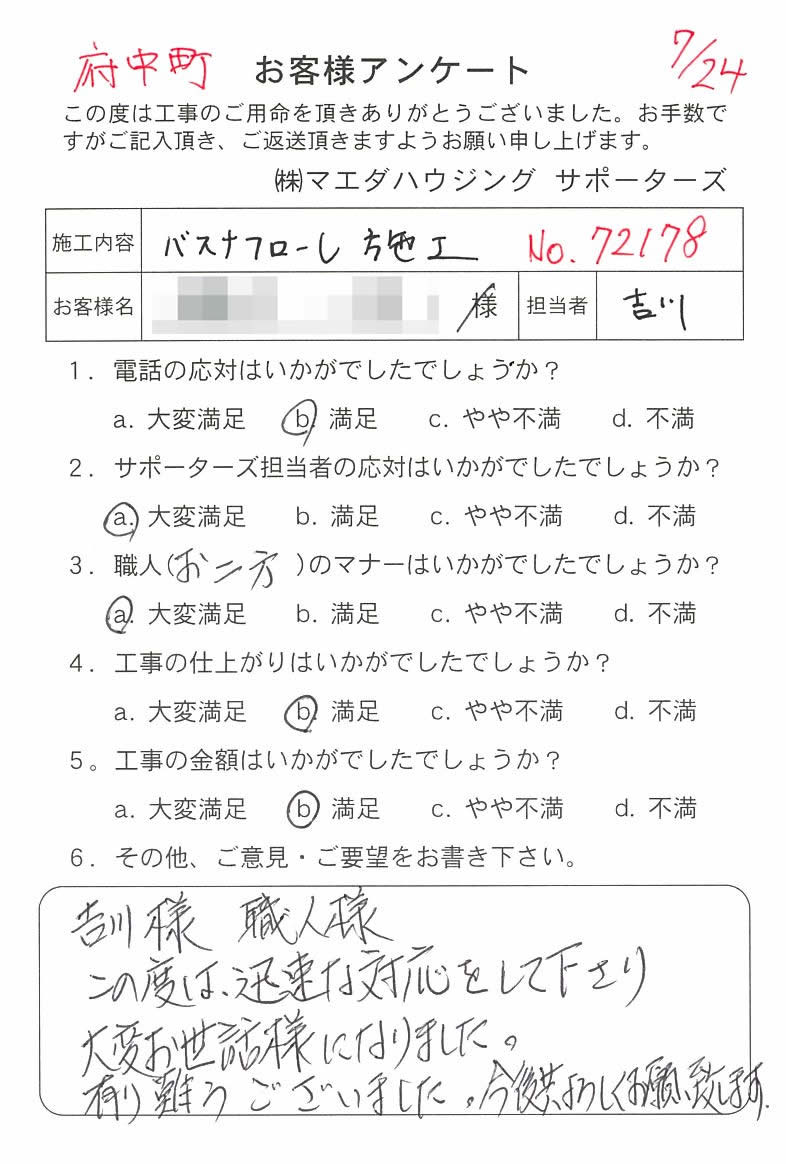 府中町 お客様アンケート 7/24
この度は工事のご用命を頂きありがとうございました。お手数で
すがご記入頂き、ご返送頂きますようお願い申し上げます。
㈱マエダハウジング サポーターズ
施工内容 バスナフローレ 施工 No.72178
お客様名 様 担当者 吉川
1．電話の応対はいかがでしたでしょうか？
a. 大変満足 b. 満足 c. やや不満 d. 不満
2．サポーターズ担当者の応対はいかがでしたでしょうか？
a. 大変満足 b. 満足 c. やや不満 d. 不満
3．職人(お二方)のマナーはいかがでしたでしょうか？
a. 大変満足 b. 満足 c. やや不満 d. 不満
4．工事の仕上がりはいかがでしたでしょうか？
a. 大変満足 b. 満足 c. やや不満 d. 不満
5。工事の金額はいかがでしたでしょうか？
a. 大変満足 b. 満足 c. やや不満 d. 不満
6．その他、ご意見・ご要望をお書き下さい。
吉川様 職人様
この度は、迅速な対応をして下さり
大変お世話様になりました。
有り難うございました。今後共よろしくお願い致します.